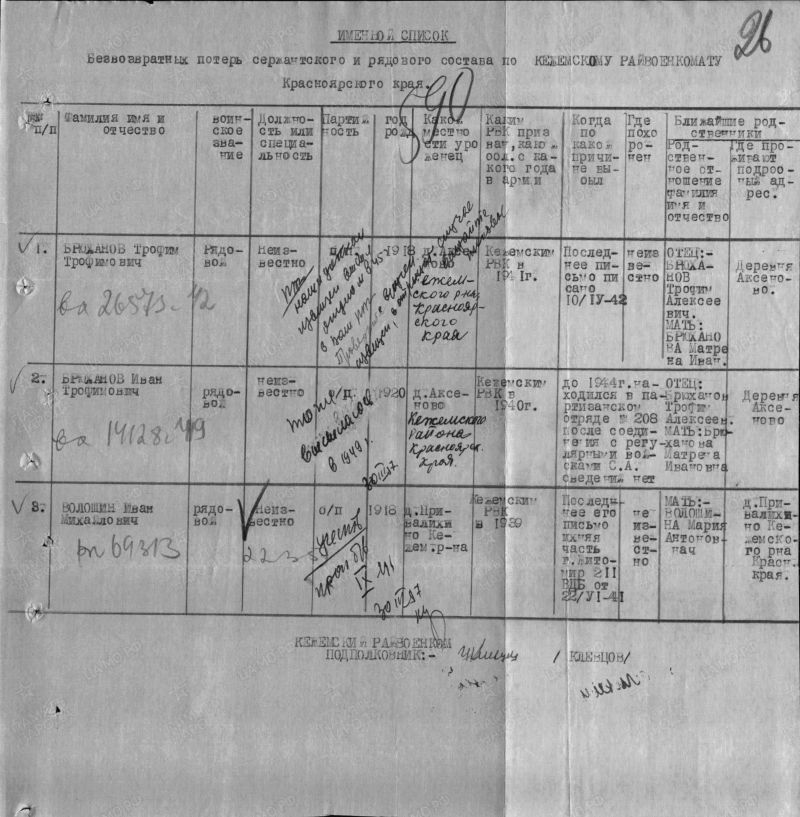 26
ИМЕННОЙ СПИСОК
Безвозвратных потерь сержантского и рядового состава по КЕЖЕМСКОМУ РАЙВОЕНКОМАТУ
Красноярского края.
№№ п/п
Фамилия имя и отчество
воин-
ское
зва-
ние
Должно-
сть или
специа-
льность
Партий
ность
год
рожд
Какой
местно
сти уро
женец
Каким
РВК приз
ван, каю
обл. с ка-
кого года
в армии
Когда
по
какой
причи-
не вы-
был
Где
похо
ро-
нен
Ближайшие род-
ственники
Род-
ствен-
ное от-
ношение
фамилия
имя и
отчество
Где про-
живают
подроб-
ный ад-
рес.
1.
БРЮХАНОВ Трофим
Трофимович
ва 26573-42
Рядо-
вой
Неиз-
вестно
1918
д.Аксе-
ново
Кежем-
ского р-на
Краснояр-
ского
края
Кежемским
РВК в
1941г.
Послед-
нее пи-
сьмо пи
сано
10/IУ-42
неиз
ве-
стно
ОТЕЦ:-
БРЮХА-
НОВ
Трофим
Алексее
вич.
МАТЬ:
БРЮХАНО
ВА Матре
на Иван.
Деревня
Аксено-
во.
2.
БРЮХАНОВ Иван
Трофимович
ва 14128-49
рядо-
вой
неиз-
вестно
б/п.
1920
д.Аксе-
ново
Кежемского
района
Красноярск.
края.
Кежемским
РВК в
1940г.
до 1944г.на-
ходился в па-
ртизанском
отряде № 208
после соеди-
нения с регу-
лярными вой-
сками С.А.
сведений нет
ОТЕЦ:
Брюханов
Трофим
Алексеев.
МАТЬ:Брю-
ханова
Матрена
Ивановна
Деревня
Аксе-
ново
тоже
высылалось
в 1949 г.
3.
ВОЛОШИН Иван
Михайлович
рядо-
вой
Неиз-
вестно
б/п
1918
д.При-
валихи
но Ке-
жем.р-на
Кежемским
РВК
в 1939
Последн-
нее его
письмо
г.Жито-
мир 211
ВДБ от
22/УI-41
не
из-
ве-
ст-
но
МАТЬ:-
ВОЛОШИ-
НА Мария
Антонов-
нач
д.При-
валихи-
но Ке-
жемско-
го рна
Красн.
края.
учесть
проп б/в
IX 41
КЕЖЕМСКИЙ РАЙВОЕНКОМ
ПОДПОЛКОВНИК:-
/ КЛЕВЦОВ/